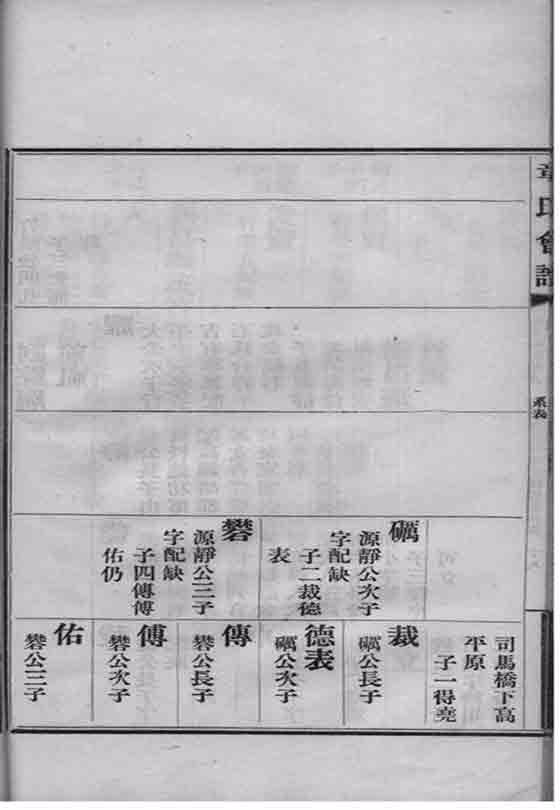 章氏會譜
系表
礪
源靜公次子
字配缺
子二裁德
表
礬
源靜公三子
字配缺
子四傳傅
佑仍
司馬橋下高
平原
子一得堯
裁
礪公長子
德表
礪公次子
傳
礬公長子
傅
礬公次子
佑
礬公三子